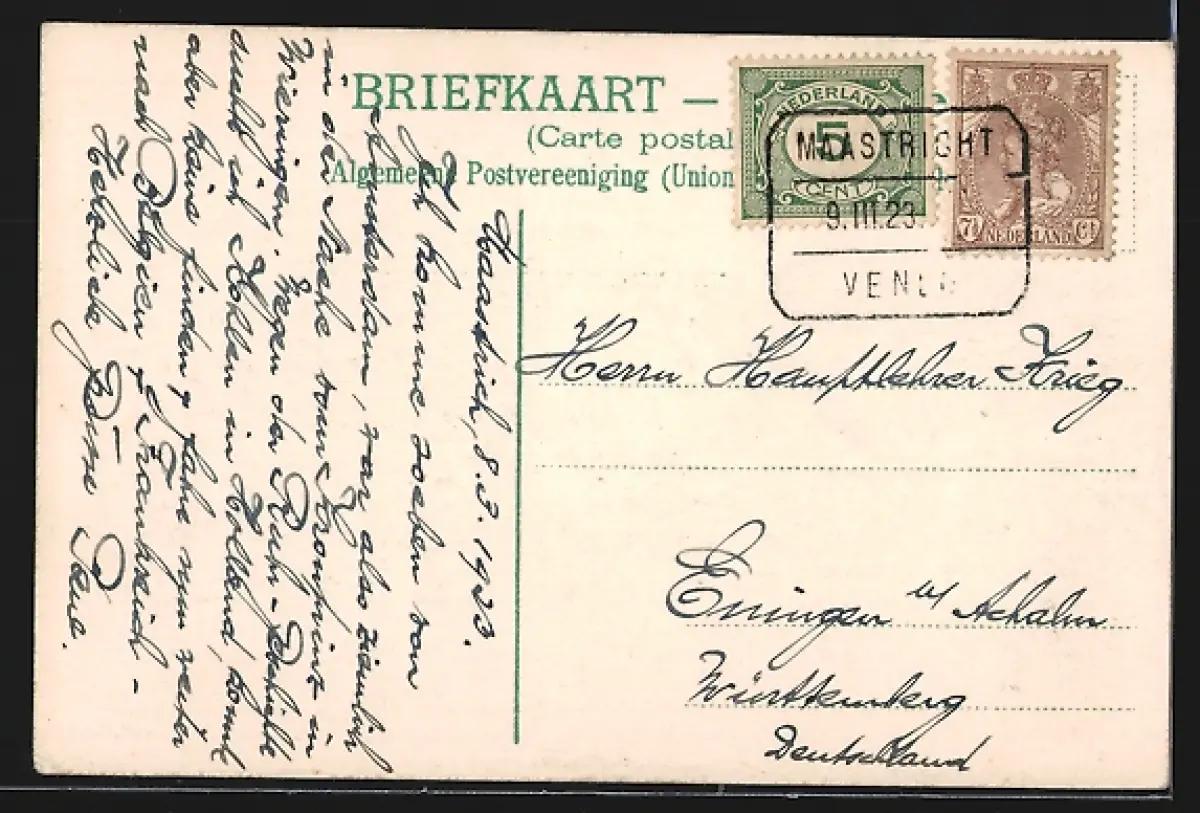 BRIEFKAART —
(Carte postal
Algemeene Postvereeniging (Union
NEDERLAND
5
CENT
7½ NEDERLAND Ct
MAASTRICHT
9.III.23.
VENLO
Maastrich, 8.3.1923.
Ich komme soeben von
Amsterdam, war also ziemlich
in der Nähe vom Kronprinz in
Wieringen. Wegen der Ruhr-
suchte ich Kohlen in Holland, konnte
aber keine finden & fahre nun weiter
nach Belgien & Frankreich –
Herzliche Grüsse
Herrn Hauptlehrer Krieg
Eningen u/ Achalm
Württemberg
Deutschland